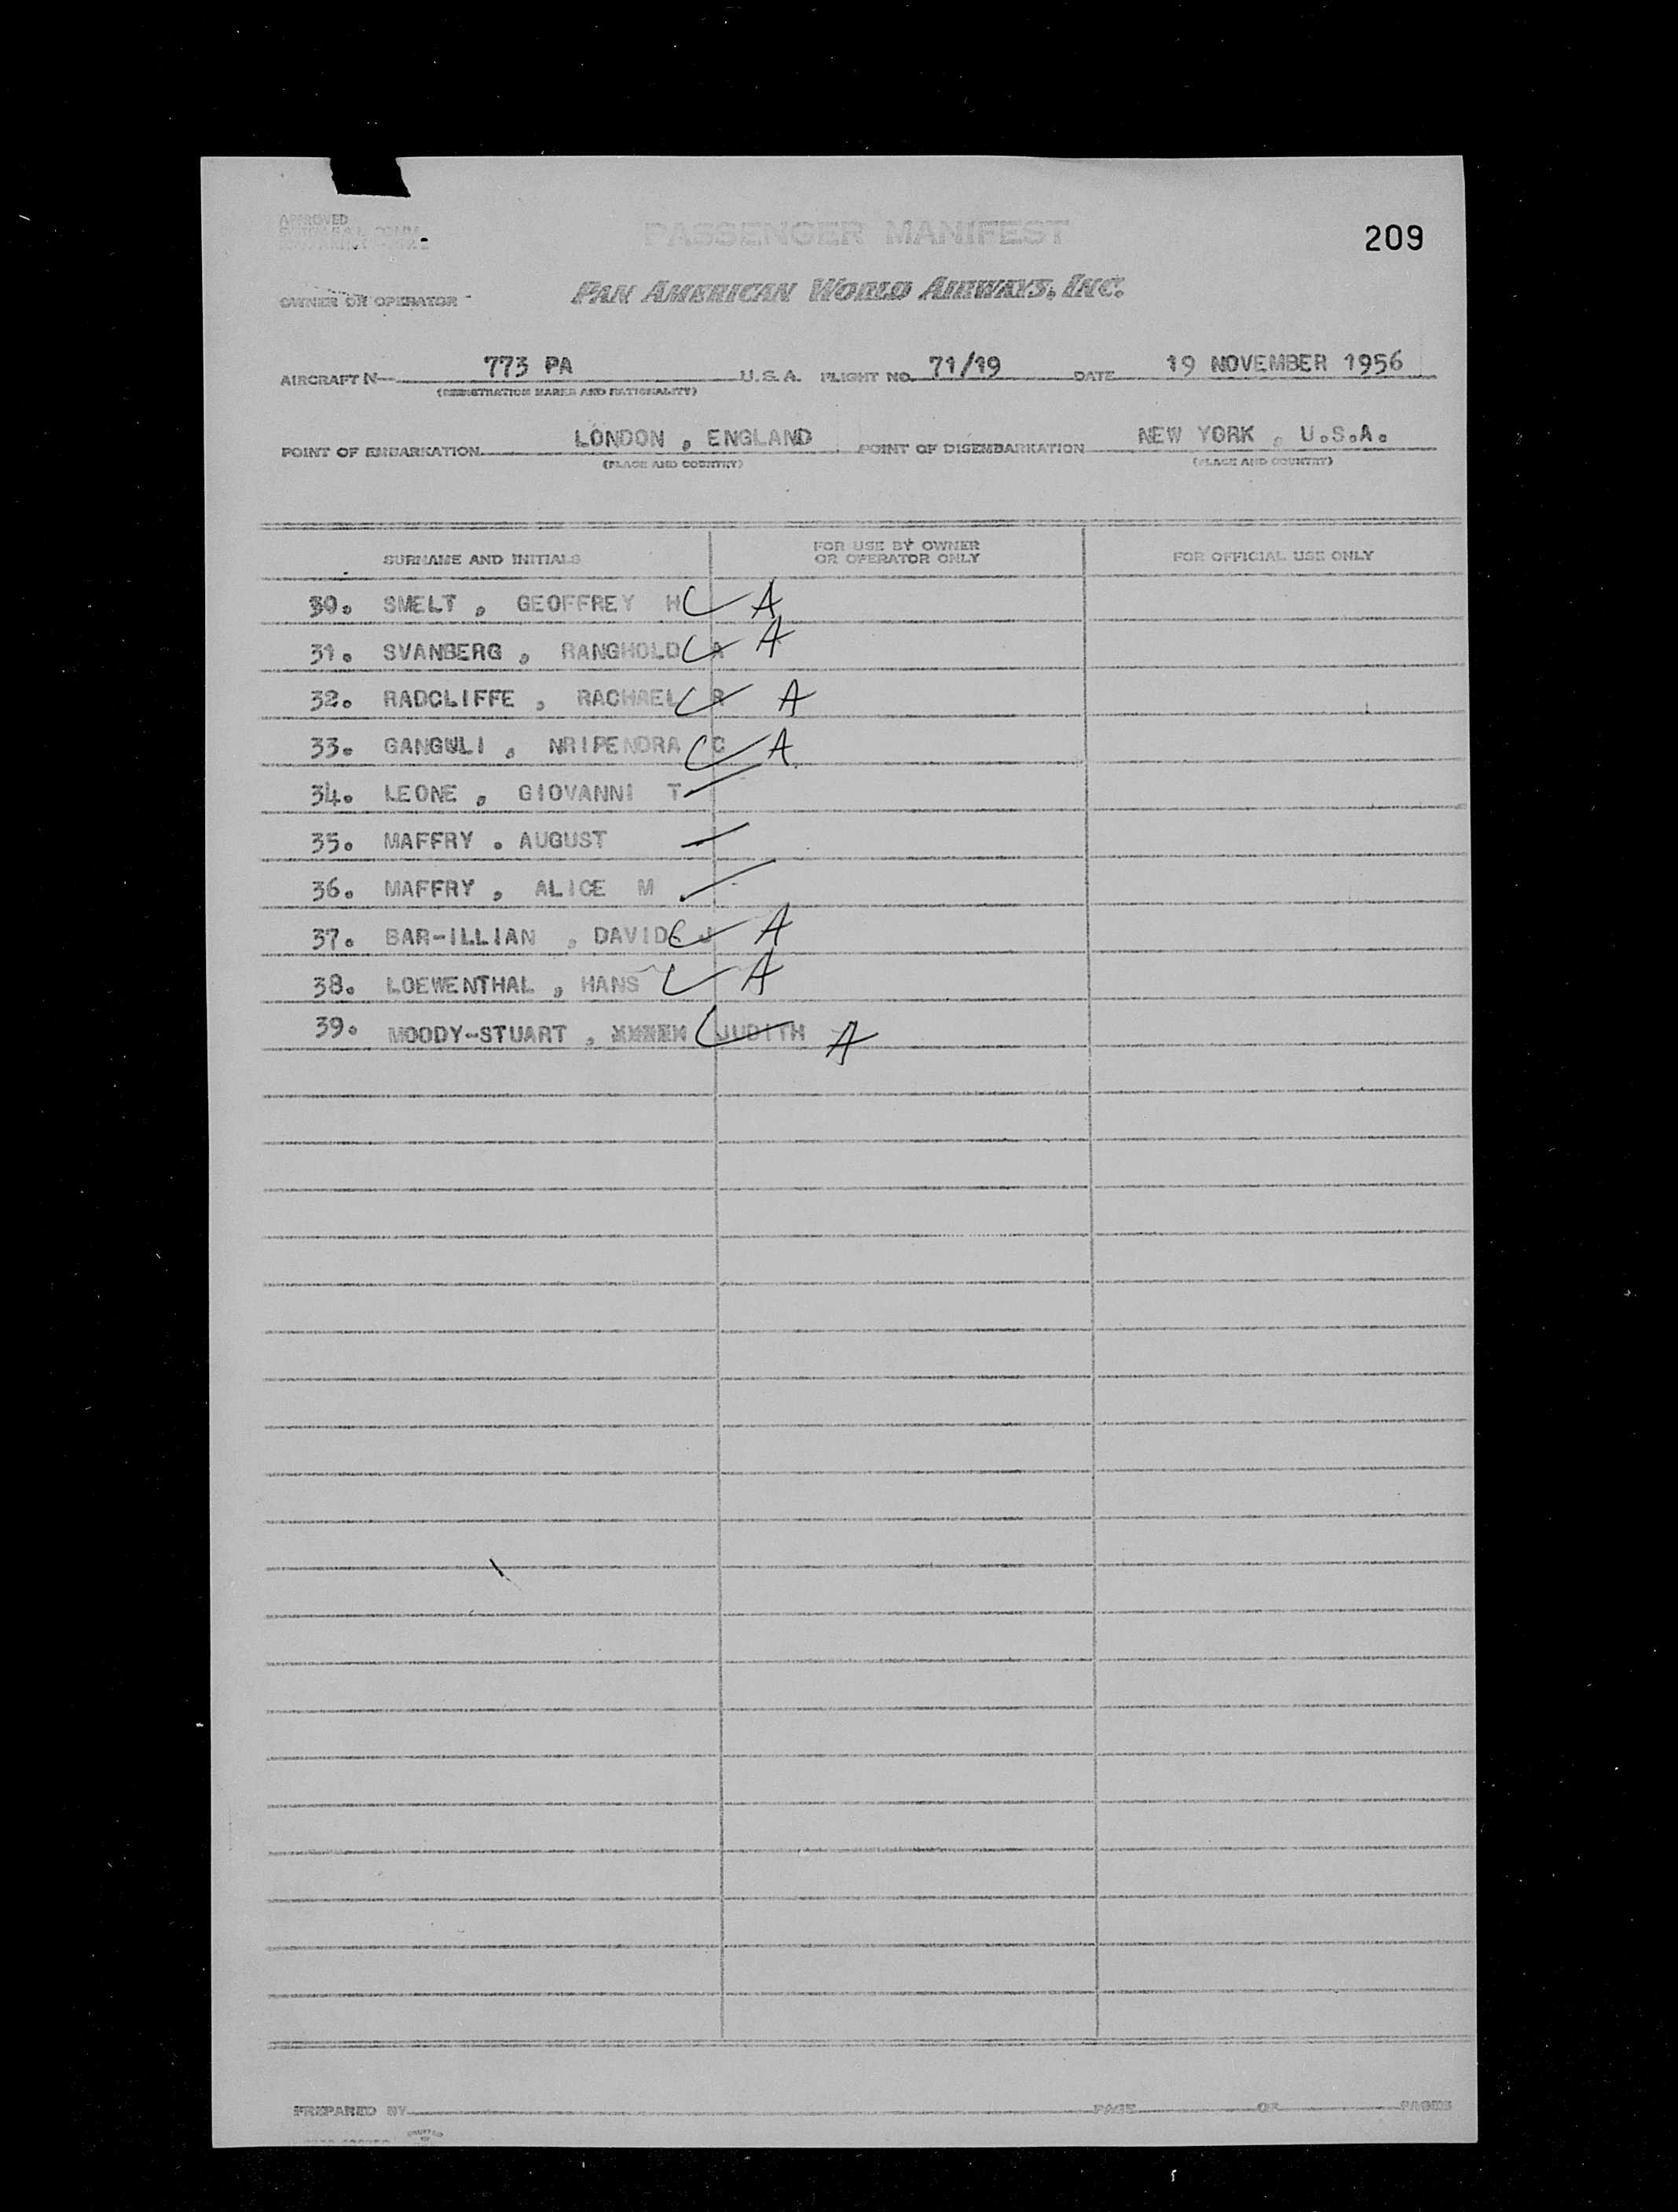 APPROVED
PASSENGER MANIFEST
209
OWNER OR OPERATOR
PAN AMERICAN WORLD AIRWAYS, INC.
AIRCRAFT N— 773 PA U.S.A. FLIGHT NO. 71/19 DATE 19 NOVEMBER 1956
(REGISTRATION MARKS AND NATIONALITY)
POINT OF EMBARKATION LONDON , ENGLAND POINT OF DISEMBARKATION NEW YORK , U.S.A.
(PLACE AND COUNTRY) (PLACE AND COUNTRY)
SURNAME AND INITIALS FOR USE BY OWNER OR OPERATOR ONLY FOR OFFICIAL USE ONLY
30. SMELT , GEOFFREY H C A
31. SVANBERG , RANGHOLD C A A
32. RADCLIFFE , RACHAEL C R A
33. GANGULI , NRIPENDRA C C A
34. LEONE , GIOVANNI T
35. MAFFRY . AUGUST
36. MAFFRY , ALICE M
37. BAR-ILLIAN , DAVID C J A
38. LOEWENTHAL , HANS C A
39. MOODY-STUART , C JUDITH A
PREPARED BY PAGE OF PAGES